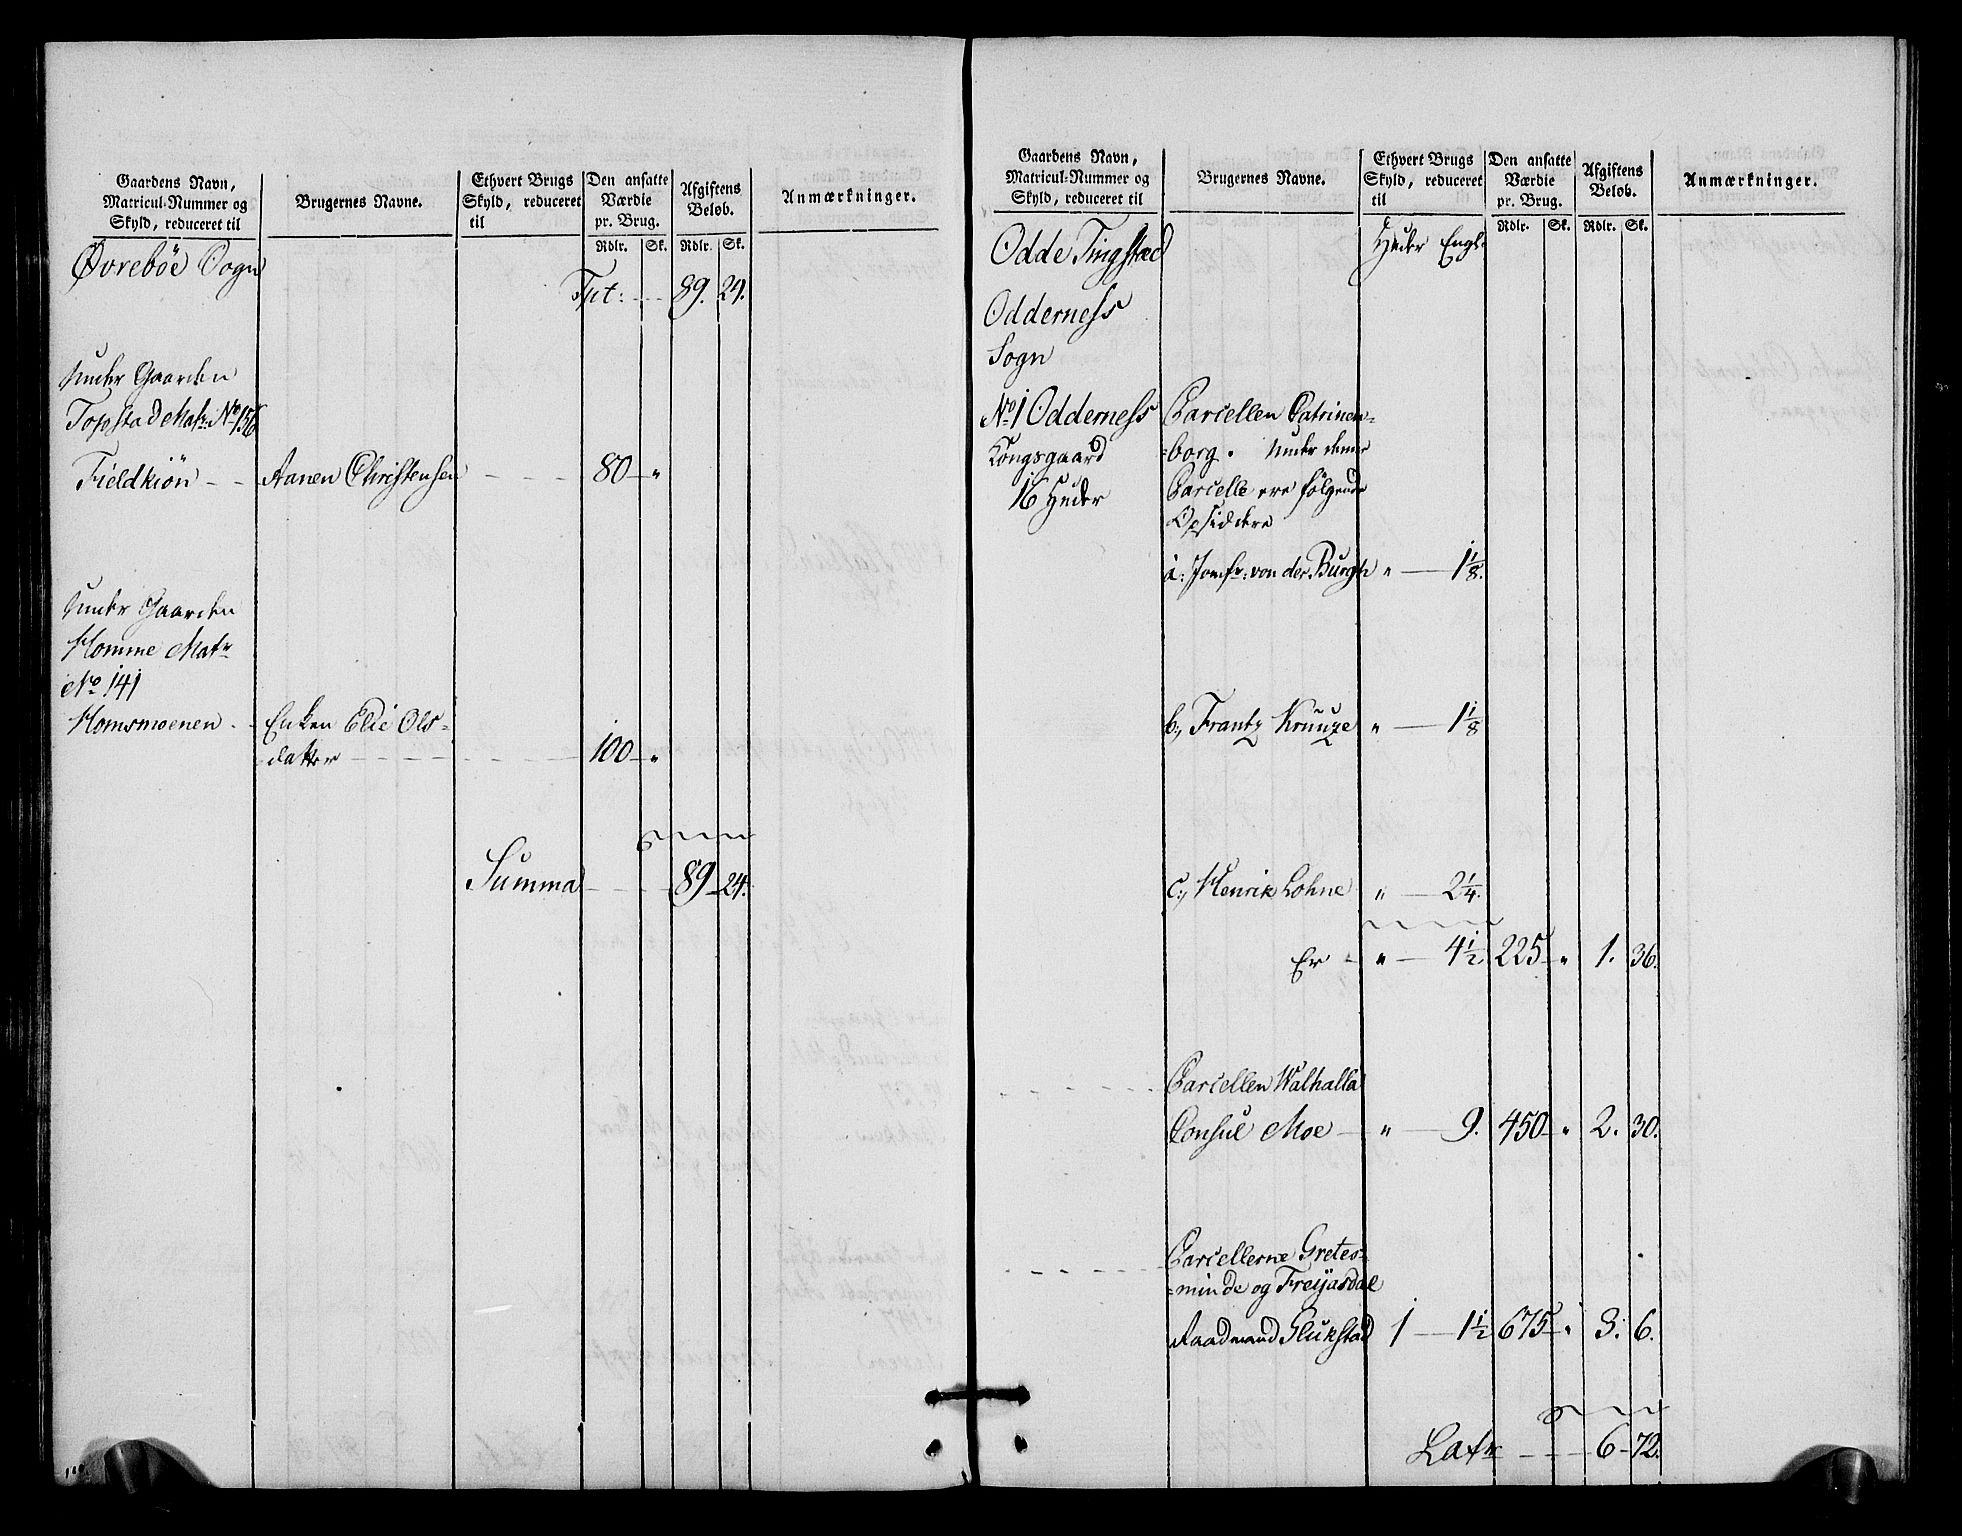 Gaardens Navn,
Matricul-Nummer og
Skyld, reduceret til
Brugernes Navne.
Ethvert Brugs
Skyld, reduceret
til
Den ansatte
Værdie
pr. Brug.
Rdlr. Sk.
Afgiftens
Beløb.
Rdlr. Sk.
Anmærkninger.
Øvrebøe Sogn
Tpt: 89. 24.
under Gaarden
Topstad Matr: No 156
Fieldkiøn - - Aanen Christensen - - - 80 - "
under Gaarden
Homme Matr
No 141
Homsmoenen - Enken Elie Ols-
datter - - - - 100 - "
Summa - - - 89 - 24.
Gaardens Navn,
Matricul-Nummer og
Skyld, reduceret til
Brugernes Navne.
Ethvert Brugs
Skyld, reduceret
til
Den ansatte
Værdie
pr. Brug.
Rdlr. Sk.
Afgiftens
Beløb.
Rdlr. Sk.
Anmærkninger.
Odde Tingsted Huder Engl.
Odderness
Sogn
No 1 Odderness Parcellen Catrinen-
Kongsgaard =borg. under denne
16 Huder Parcelle ere følgende
Opsiddere
a: Jomfr: von der Burgh " - 1 1/8.
b, Frantz Kruuze " - 1 1/8
c, Henrik Lohne " - 2 1/4.
Er - " - 4 1/2 225 - " 1. 36.
Parcellen Walhalla
Consul Moe - " - 9. 450 - " 2. 30.
Parcellerne Gretes-
=minde og Freÿasdal
Raadmand Glukstad 1 - 1 1/2 675 - " 3. 6.
Latr - - - 6 - 72.